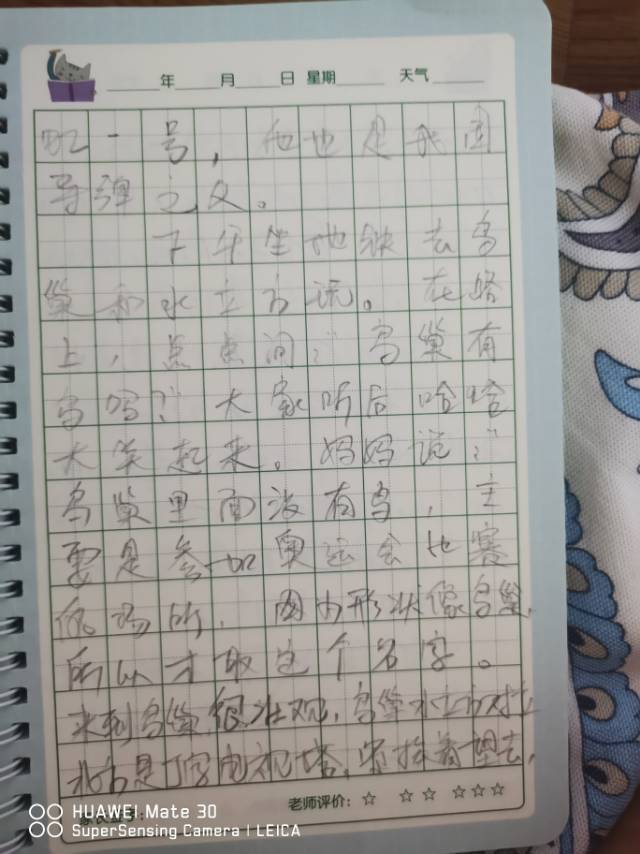 年 月 日 星期 天气
一号，他也是我国
导弹之父。
下午坐地铁去鸟
巢和水立方玩。在路
上，点点问：“鸟巢有
鸟吗？”大家听后哈哈
大笑起来。妈妈说：“
鸟巢里面没有鸟，主
要是参加奥运会比赛
的场所，因为形状像鸟巢，
所以才取这个名字。
来到鸟巢，很壮观，鸟巢水立方对拉
北方是丁字电视塔，紧挨着望去，
老师评价：☆ ☆☆ ☆☆☆
HUAWEI Mate 30
SuperSensing Camera | LEICA